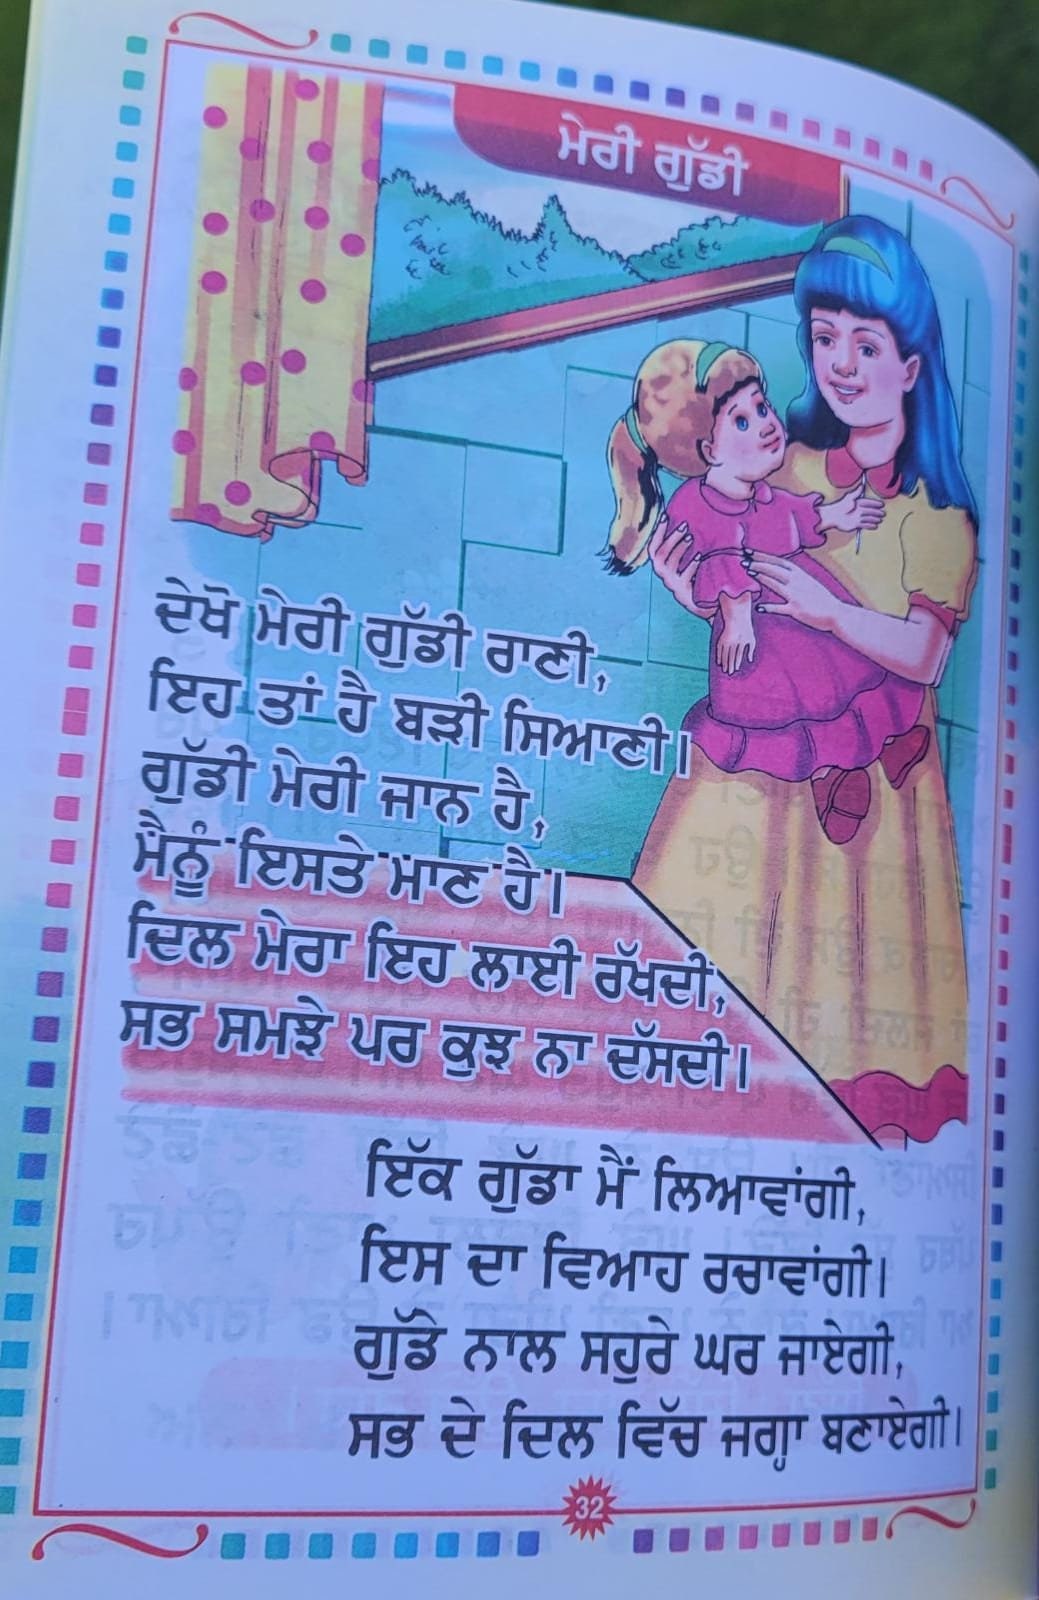 ਮੇਰੀ ਗੁੱਡੀ
ਦੇਖੋ ਮੇਰੀ ਗੁੱਡੀ ਰਾਣੀ,
ਇਹ ਤਾਂ ਹੈ ਬੜੀ ਸਿਆਣੀ।
ਗੁੱਡੀ ਮੇਰੀ ਜਾਨ ਹੈ,
ਮੈਨੂੰ ਇਸਤੇ ਮਾਣ ਹੈ।
ਦਿਲ ਮੇਰਾ ਇਹ ਲਾਈ ਰੱਖਦੀ,
ਸਭ ਸਮਝੇ ਪਰ ਕੁਝ ਨਾ ਦੱਸਦੀ।
ਇੱਕ ਗੁੱਡਾ ਮੈਂ ਲਿਆਵਾਂਗੀ,
ਇਸ ਦਾ ਵਿਆਹ ਰਚਾਵਾਂਗੀ।
ਗੁੱਡੇ ਨਾਲ ਸਹੁਰੇ ਘਰ ਜਾਏਗੀ,
ਸਭ ਦੇ ਦਿਲ ਵਿੱਚ ਜਗ੍ਹਾ ਬਣਾਏਗੀ।
32